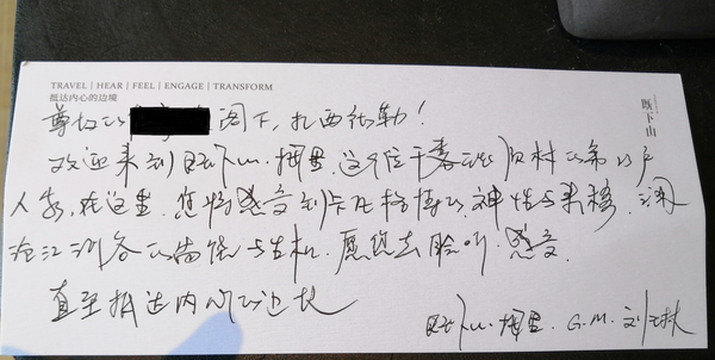 TRAVEL | HEAR | FEEL | ENGAGE | TRANSFORM
抵达内心的边境
既下山
尊敬的 阁下,扎西德勒!
欢迎来到既下山·梅里,这个位于雾浓顶村的第 户
人家,在这里,您将感受到卡瓦格博的神性与柔穆,澜
沧江河谷的 与生机,愿您去聆听,感受,
直至抵达内心的边境
既下山·梅里. G.M. 刘